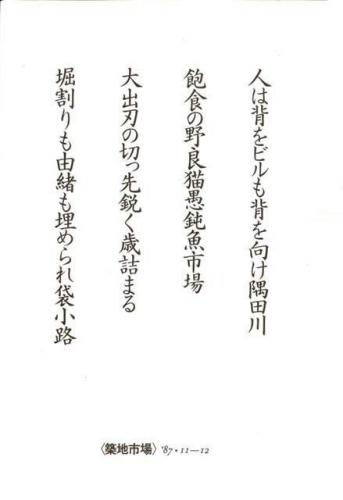 人は背をビルも背を向け隅田川
飽食の野良猫愚鈍魚市場
大出刃の切っ先鋭く歳詰まる
堀割りも由緒も埋められ袋小路
〈築地市場〉'87・11—12